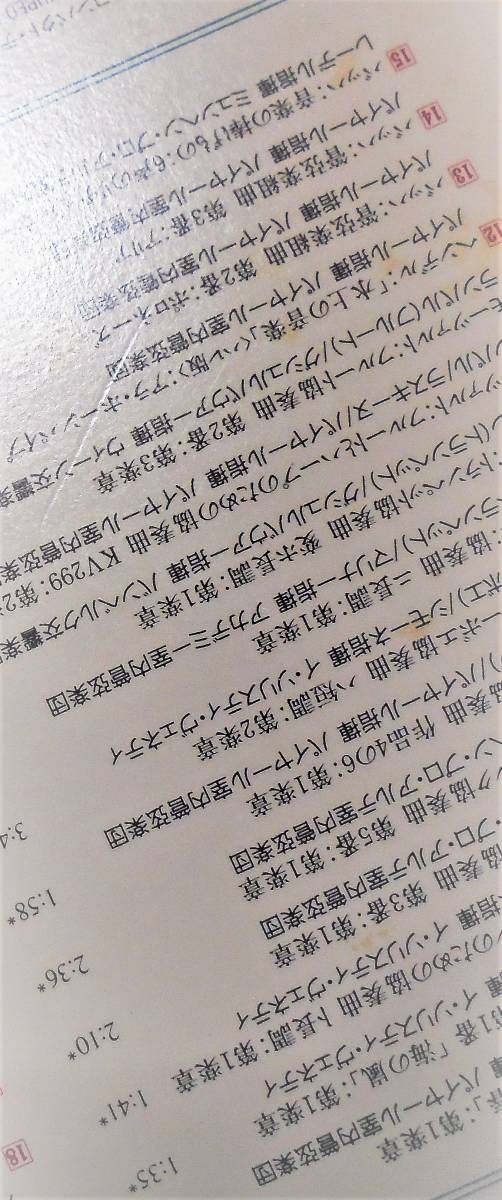 春」: 第1楽章
揮 バイヤール室内管弦楽団
1:35*
第1番「海の嵐」: 第1楽章
揮 イ・ソリスティ・ヴェネティ
1:41*
のための協奏曲 ト長調: 第1楽章
指揮 イ・ソリスティ・ヴェネティ
2:10*
協奏曲 第3番: 第1楽章
・プロ・アルテ室内管弦楽団
2:36*
ク協奏曲 第5番: 第1楽章
ン・プロ・アルテ室内管弦楽団
1:58*
協奏曲 作品4の6: 第1楽章
)/バイヤール指揮 バイヤール室内管弦楽団
3:4
ーボエ協奏曲 ハ短調: 第2楽章
ボエ)/シモーネ指揮 イ・ソリスティ・ヴェネティ
: 協奏曲 ニ長調: 第1楽章
ンペット)/マリナー指揮 アカデミー室内管弦楽団
: トランペット協奏曲 変ホ長調: 第1楽章
ン(トランペット)/グシュルバウアー指揮 バンベルク交響楽
ツァルト: フルートとハープのための協奏曲 KV299: 第2
パル/ラスキーヌ/バイヤール指揮 バイヤール室内管弦楽団
ーツァルト: フルート協奏曲 第2番: 第3楽章
ランパル(フルート)/グシュルバウアー指揮 ウィーン交響楽
12 ヘンデル:「水上の音楽」〈ハレ版〉: ア・ホーンパイプ
バイヤール指揮 バイヤール室内管弦楽団
13 バッハ: 管弦楽組曲 第2番: ポロネーズ
バイヤール指揮 バイヤール室内管弦楽団
14 バッハ: 管弦楽組曲 第3番: アリア
バイヤール指揮 バイヤール室内管弦
15 バッハ: 音楽の捧げもの: 6声のリチ
レーデル指揮 ミュンヘン・プロ・アルテ室
18
コンパクト・デ